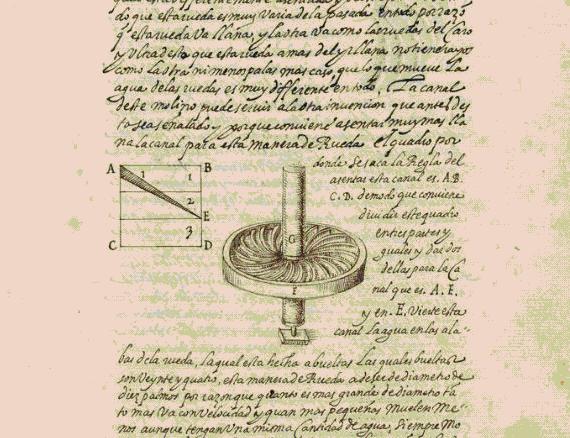 do que esta rueda es muy varia de la pasada en todo por razõ
q̃ esta rueda va llana, y la otra va como las ruedas del Carro
y ultra de esto que esta rueda a mas del yr llana no tiene rayos
como la otra ni menos palas mas caso, que lo que mueve la
agua de las ruedas es muy differente en todo, La canal
deste molino puede servir a la otra invencion que antes des
to sea señalado, y porque conviene asentar muy mas lla
na la canal para esta manera de Rueda el quadro por
donde se saca la Regla del
asentar esta canal es. A.B.
C.D. de modo que conviene
dividir este quadro
en tres partes y
guales y dar dos
dellas para la Ca
nal que es. A. E.
y en. E. Viene esta
canal la agua en las ala-
A
B
1
1
2
E
3
C
D
G
F
bas de la rueda, la qual esta hecha a bueltas las quales bueltas
son veynte y quatro, esta manera de Rueda a de ser de diametro de
diez palmos por razon que quanto es mas grande de diametro tã
to mas va con velocidad y quan mas pequeñas muelen me-
nos aunque tengan una misma Cantidad de agua, siempre Mo